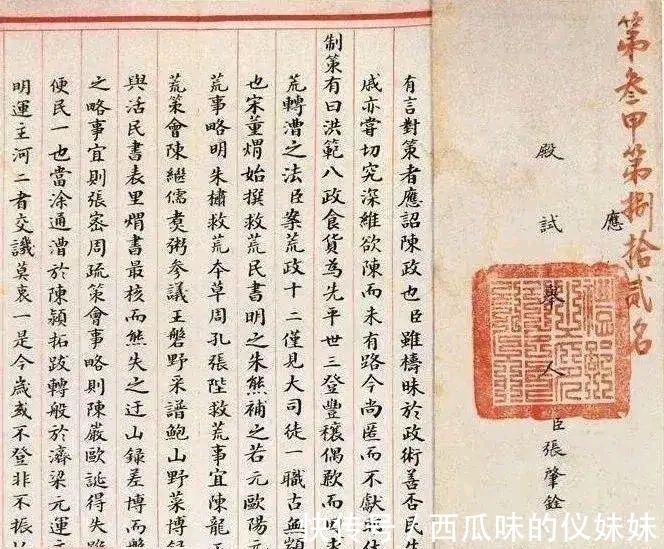 第叁甲第捌拾貳名
應
殿試舉人臣張肇銓
有言對策者應詔陳政也臣雖檮昧於政術善否民
戚亦嘗切究深維欲陳而未有路今尚匿而不獻
制策有曰洪範八政食貨為先平世三登豐穰偶歉而
荒轉漕之法臣案荒政十二僅見大司徒一職古無類
也宋董煟始撰救荒民書明之朱熊補之若元歐陽元
荒事略明朱橚救荒本草周孔張陛救荒事宜陳龍
荒策會陳繼儒煑粥參議王磐野采譜鮑山野菜博
與活民書表里煟書最核而熊失之迂山録差博而磐
之略事宜則張密周疏策會事略則陳嚴歐誕得失雖
便民一也當涂通漕於陳穎拓跋轉般於濟梁元運
明運主河二者交譏莫衷一是今歲或不登非不振
快传号/西瓜味的仪妹妹